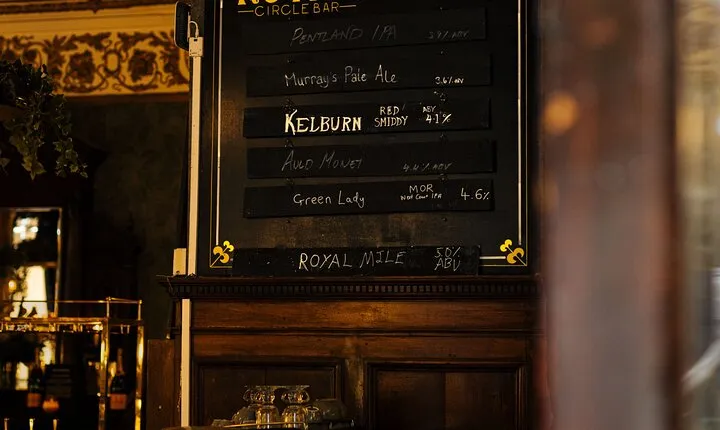 CIRCLE BAR
PENTLAND IPA 3.9% ABV
Murray's Pale Ale 3.6% ABV
KELBURN RED SMIDDY ABV 4.1%
AULD MONEY 4.4% ABV
Green Lady MOR West Coast IPA 4.6%
ROYAL MILE 5.0% ABV